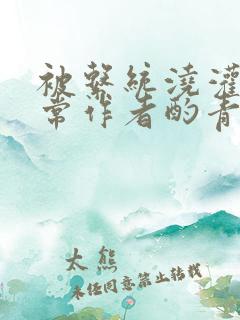 被繫統澆灌
常作者酌青
太熊
未经同意禁止转载